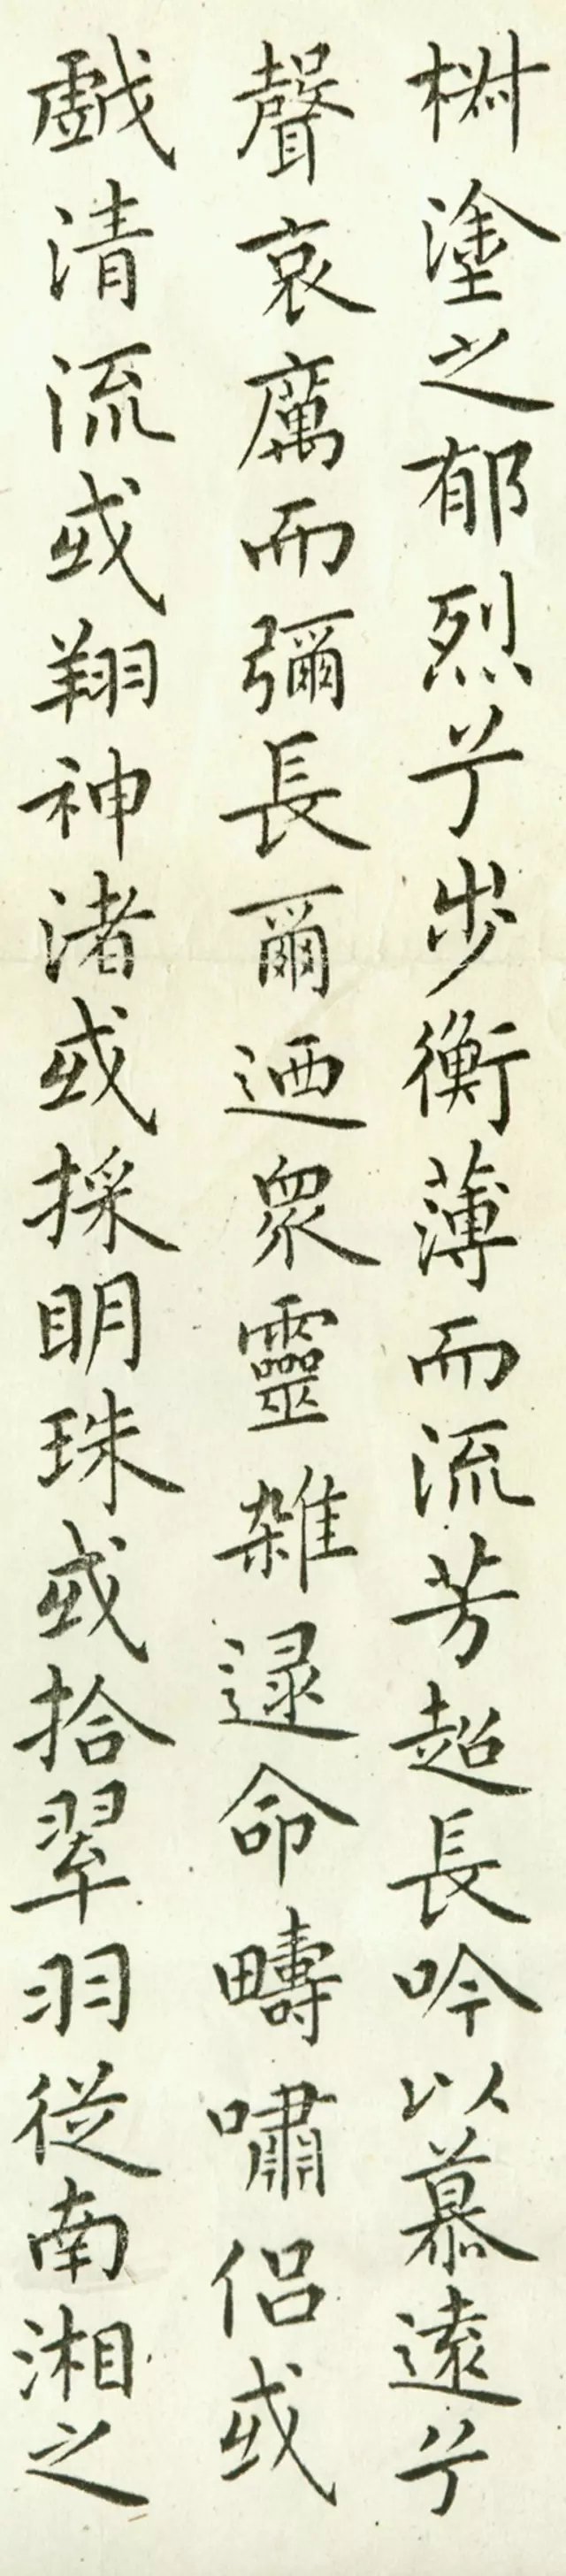 椒塗之郁烈兮步衡薄而流芳超長吟以慕遠兮
聲哀厲而彌長爾迺衆靈雜遝命疇嘯侶或
戲清流或翔神渚或採明珠或拾翠羽從南湘之